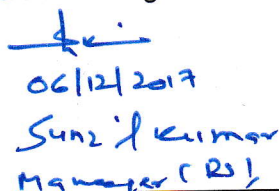 06/12/2017
Sunil Kumar
Manager (RS)